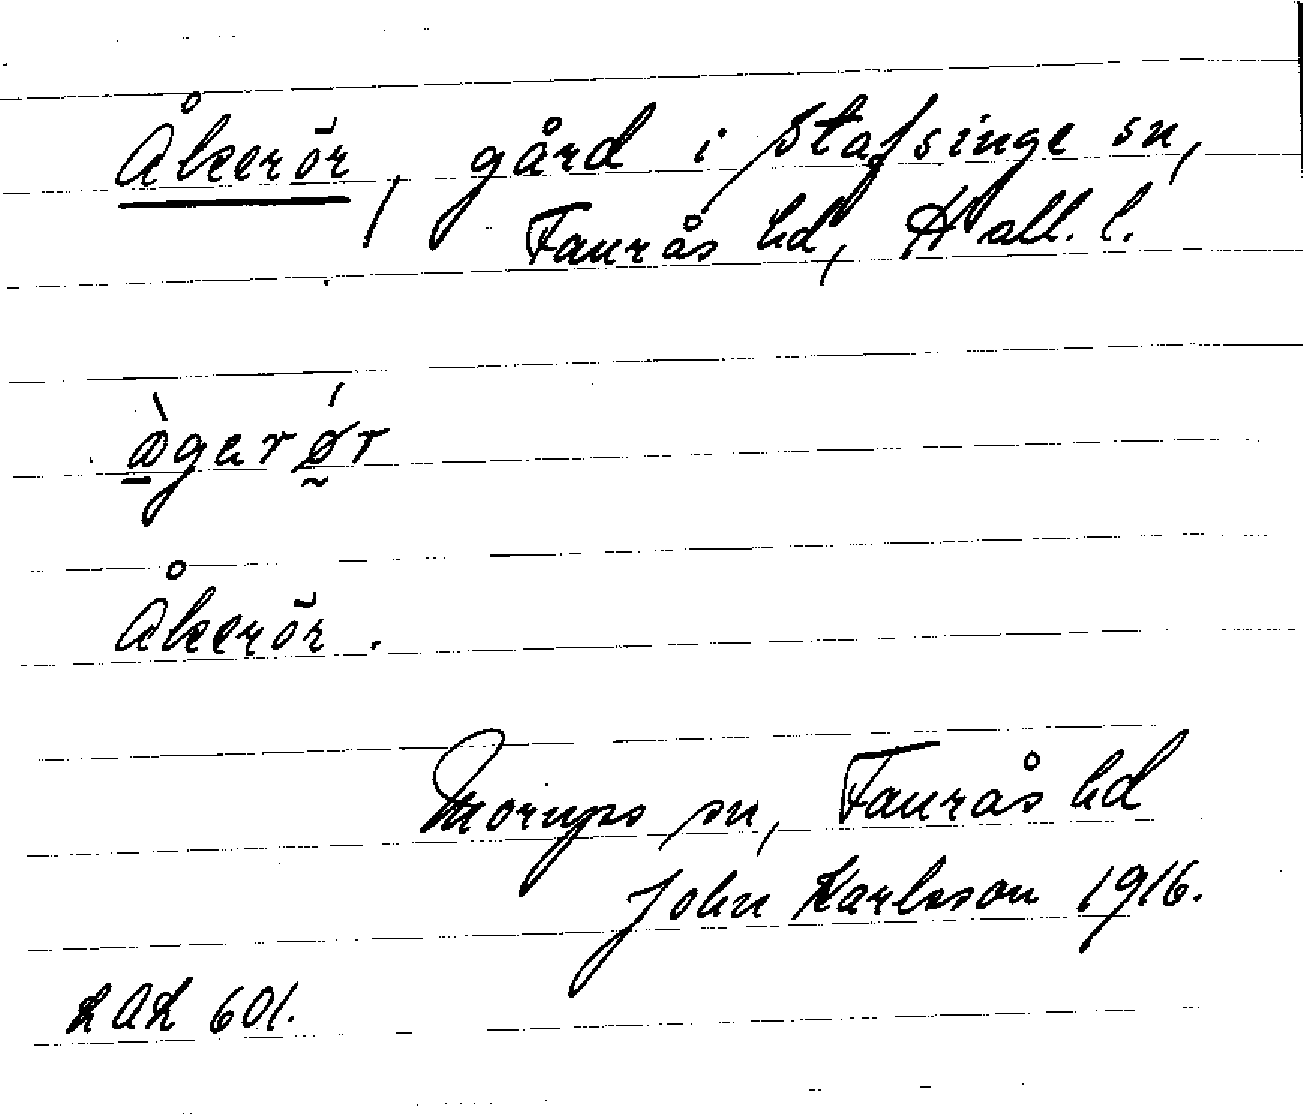 Åkerör, gård i Stafsinge sn,
Faurås hd, Hall. l.
Åkerör.
Morups sn, Faurås hd
John Karlsson 1916.
LAL 601.